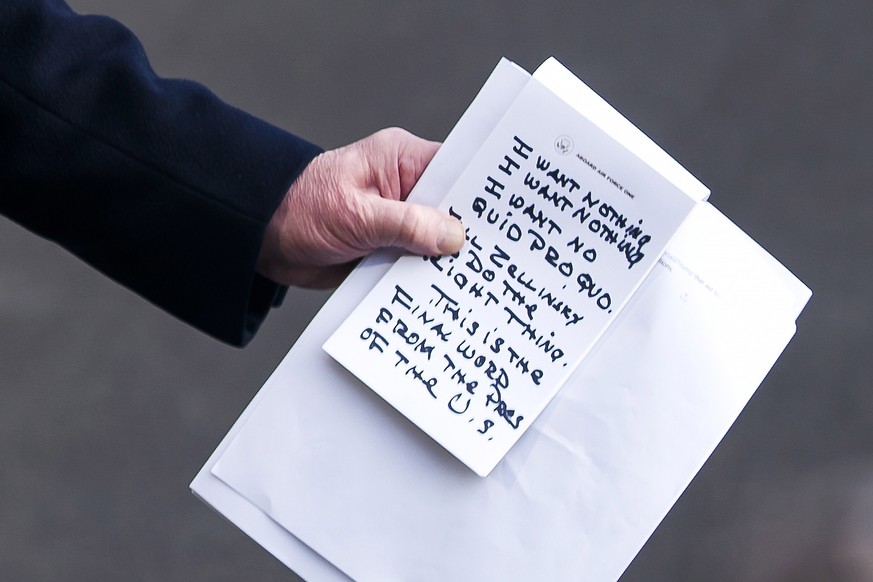 ABOARD AIR FORCE ONE
I WANT NOTHING
I WANT NOTHING
I WANT NO
QUID PRO QUO.
ZELLINSKY
DO THE
RIGHT THING.
THIS IS THE
FINAL WORD
FROM THE PRES
OF THE U.S.